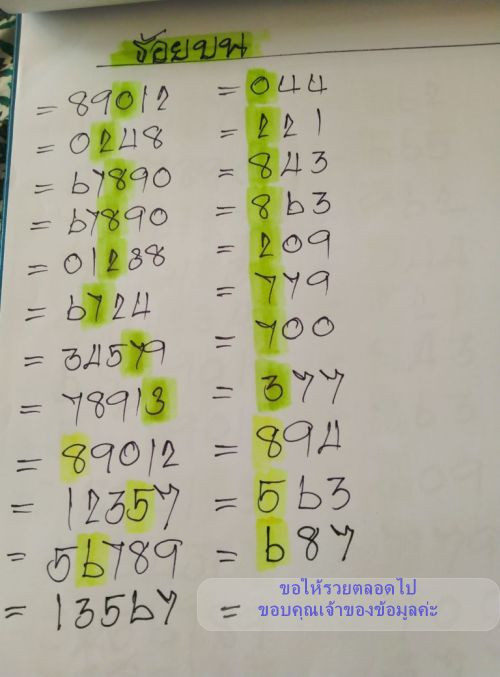 ร้อยบน
= 89012 = 044
= 0248 = 221
= 67890 = 843
= 67890 = 863
= 01288 = 209
= 6724 = 779
= 34579 = 700
= 78913 = 377
= 89012 = 894
= 12357 = 563
= 56789 = 687
= 13567 =
ขอให้รวยตลอดไป
ขอบคุณเจ้าของข้อมูลค่ะ